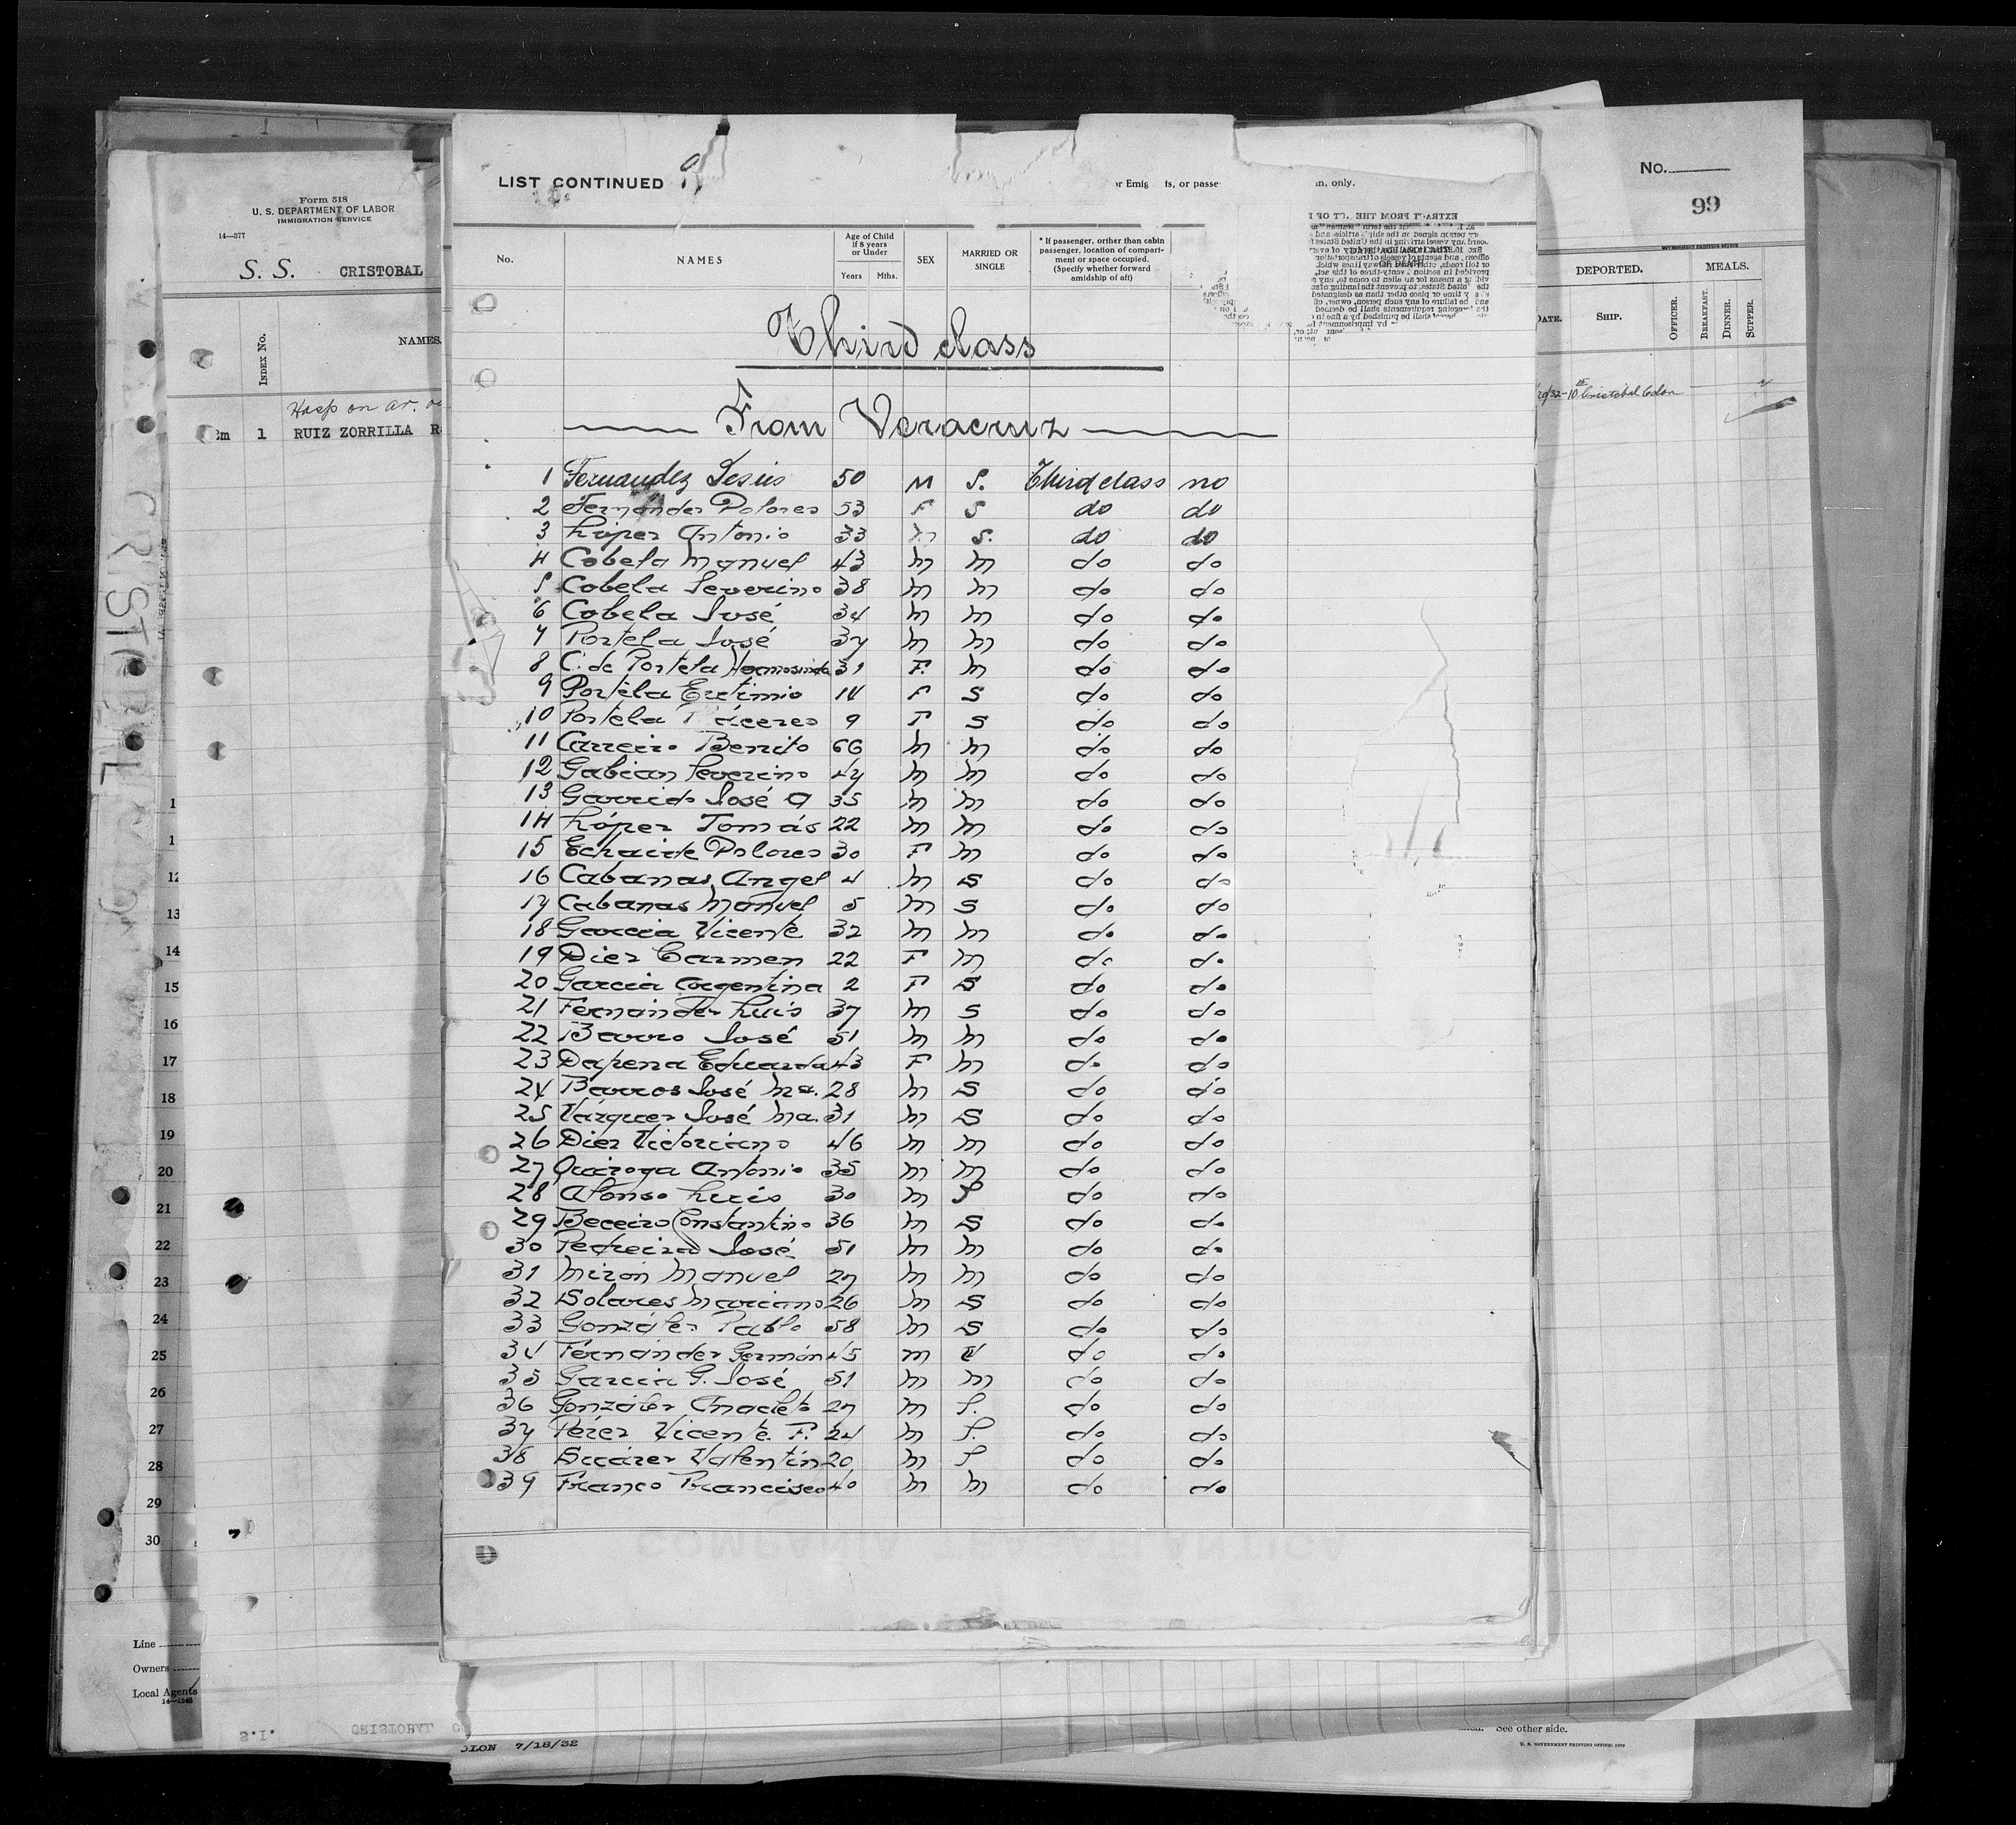 Form 518
U. S. DEPARTMENT OF LABOR
IMMIGRATION SERVICE
14—377
S. S. CRISTOBAL
INDEX No.
NAMES.
Hosp on ar.
1 RUIZ ZORRILLA
CRISTOBAL
1
1
12
13
14
15
16
17
18
19
20
21
22
23
24
25
26
27
28
29
30
Line
Owners
Local Agents
14—1240
S.I. CRISTOBAL C
OLON 7/18/32
LIST CONTINUED 9
or Emig ts, or passe n, only.
EXTRACT FROM THE ACT OF
No.
NAMES
Age of Child if 8 years or Under
Years Mths.
SEX
MARRIED OR SINGLE
* If passenger, orther than cabin passenger, location of compartment or space occupied. (Specify whether forward amidship of aft)
DATE, PLACE AND CAUSE OF DEATH
Third class
From Veracruz
1 Fernandez Jesús 50 M S. Third class no
2 Fernández Dolores 53 F S do do
3 López Antonio 33 m S. do do
4 Cobela Manuel 43 m m do do
5 Cobela Severino 38 m m do do
6 Cobela José 34 m m do do
7 Portela José 37 m m do do
8 C. de Portela Hermosinda 31 F. m do do
9 Portela Eutimio 14 F S do do
10 Portela 9 F S do do
11 Carreiro Benito 66 m m do do
12 Gabian Severino 47 m m do do
13 Garrido José A 35 m m do do
14 López Tomás 22 m m do do
15 Echaide Dolores 30 F m do do
16 Cabanas Angel 4 m S do do
17 Cabanas Manuel 5 m S do do
18 Garcia Vicente 32 m m do do
19 Diez Carmen 22 F m do do
20 Garcia Argentina 2 F S do do
21 Fernández Luis 37 m S do do
22 Barro José 51 m m do do
23 Dapena Eduarda 43 F m do do
24 Barros José Ma. 28 m S do do
25 Vázquez José Ma. 31 m S do do
26 Diez Victoriano 46 m m do do
27 Quiroga Antonio 35 m m do do
28 Afonso Luis 30 m S do do
29 Beceiro Constantino 36 m S do do
30 Pedreira José 51 m m do do
31 Mirón Manuel 27 m m do do
32 Solares Mariano 26 m S do do
33 González Pablo 58 m S do do
34 Fernández Germán 45 m V do do
35 Garcia G. José 51 m m do do
36 González Anacleto 27 m S. do do
37 Pérez Vicente F. 24 m S. do do
38 Suárez Valentín 20 m S do do
39 Franco Francisco 40 m m do do
COMPAÑIA TRASATLANTICA
No.
99
GOVERNMENT PRINTING OFFICE
DEPORTED. MEALS.
DATE. SHIP. OFFICER. BREAKFAST. DINNER. SUPPER.
/32-10 Cristobal Colon
See other side.
U. S. GOVERNMENT PRINTING OFFICE: